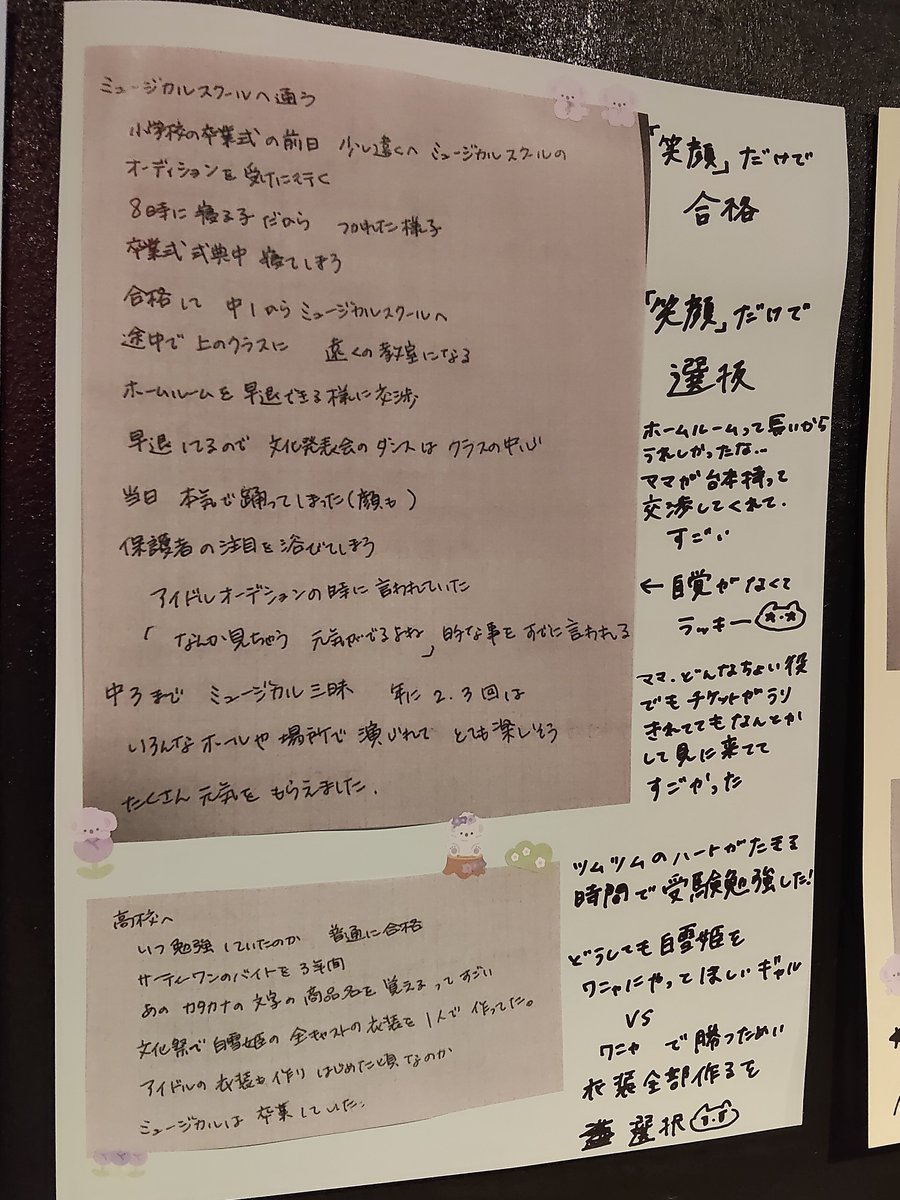 ミュージカルスクールへ通う
小学校の卒業式の前日 少し遠くへ ミュージカルスクールの
オーディションを 受けに行く
8時に 寝る子だから つかれた様子
卒業式 式典中 寝てしまう
合格して 中1から ミュージカルスクールへ
途中で 上のクラスに 遠くの教室になる
ホームルームを 早退できる様に交渉
早退してるので 文化発表会の ダンスは クラスの中心
当日 本気で踊ってしまった(顔も)
保護者の注目を浴びてしまう
アイドルオーデションの時に 言われていた
「なんか見ちゃう 元気がでるよね」的な事を すでに言われる
中3まで ミュージカル三昧 年に2.3回は
いろんなホールや場所で 演じれて とても楽しそう
たくさん 元気を もらえました.
「笑顔」だけで
合格
「笑顔」だけで
選抜
ホームルームって長いから
うれしかったな...
ママが台本持って
交渉してくれて.
すごい
←自覚がなくて
ラッキー
ママ.どんなちょい役
でもチケットがうり
きれててもなんとか
して見に来てて
すごかった
高校へ
いつ勉強していたのか 普通に合格
サーティーワンのバイトを3年間
あの カタカナの文字の商品名を 覚えるってすごい
文化祭で白雪姫の 全キャストの衣装を 1人で 作ってた。
アイドルの衣装も 作り はじめた頃なのか
ミュージカルは 卒業していた.
ツムツムのハートがたまる
時間で受験勉強した!
どうしても白雪姫を
ワニャにやってほしいギャル
VS
ワニャ で勝つために
衣装全部作るを
選択